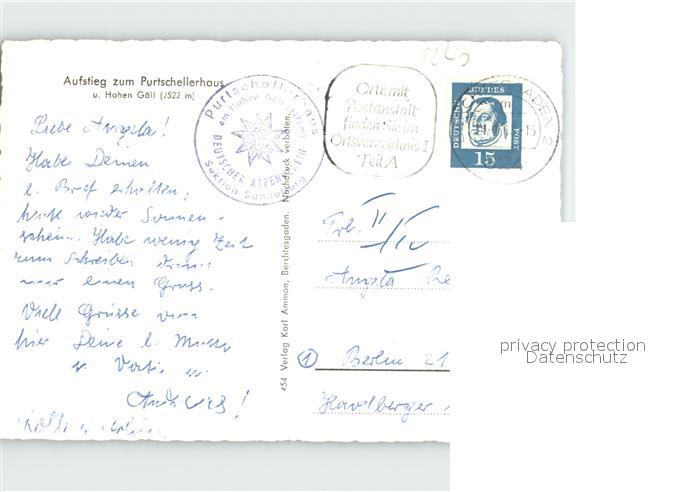 Aufstieg zum Purtschellerhaus
u. Hohen Göll (2522 m)
Purtschellerhaus
am Hohen Göll
DEUTSCHER ALPENVEREIN
Sektion Sonneberg
Orte mit
Postanstalt
finden Sie im
Ortsverzeichnis I
Teil A
DEUTSCHE BUNDESPOST
15
2
Liebe Angela!
Habe Deinen
l. Brief erhalten,
heute wieder Sonnen-
schein. Habe wenig Zeit
zum Schreiben
nur einen Gruss.
Viele Grüsse von
hier Deine l. Mutti
u. Vati u.
Andreas!
454 Verlag Karl Ammon, Berchtesgaden. Nachdruck verboten.
Frl.
Angela
1 Berlin 21
Havelberger
privacy protection
Datenschutz